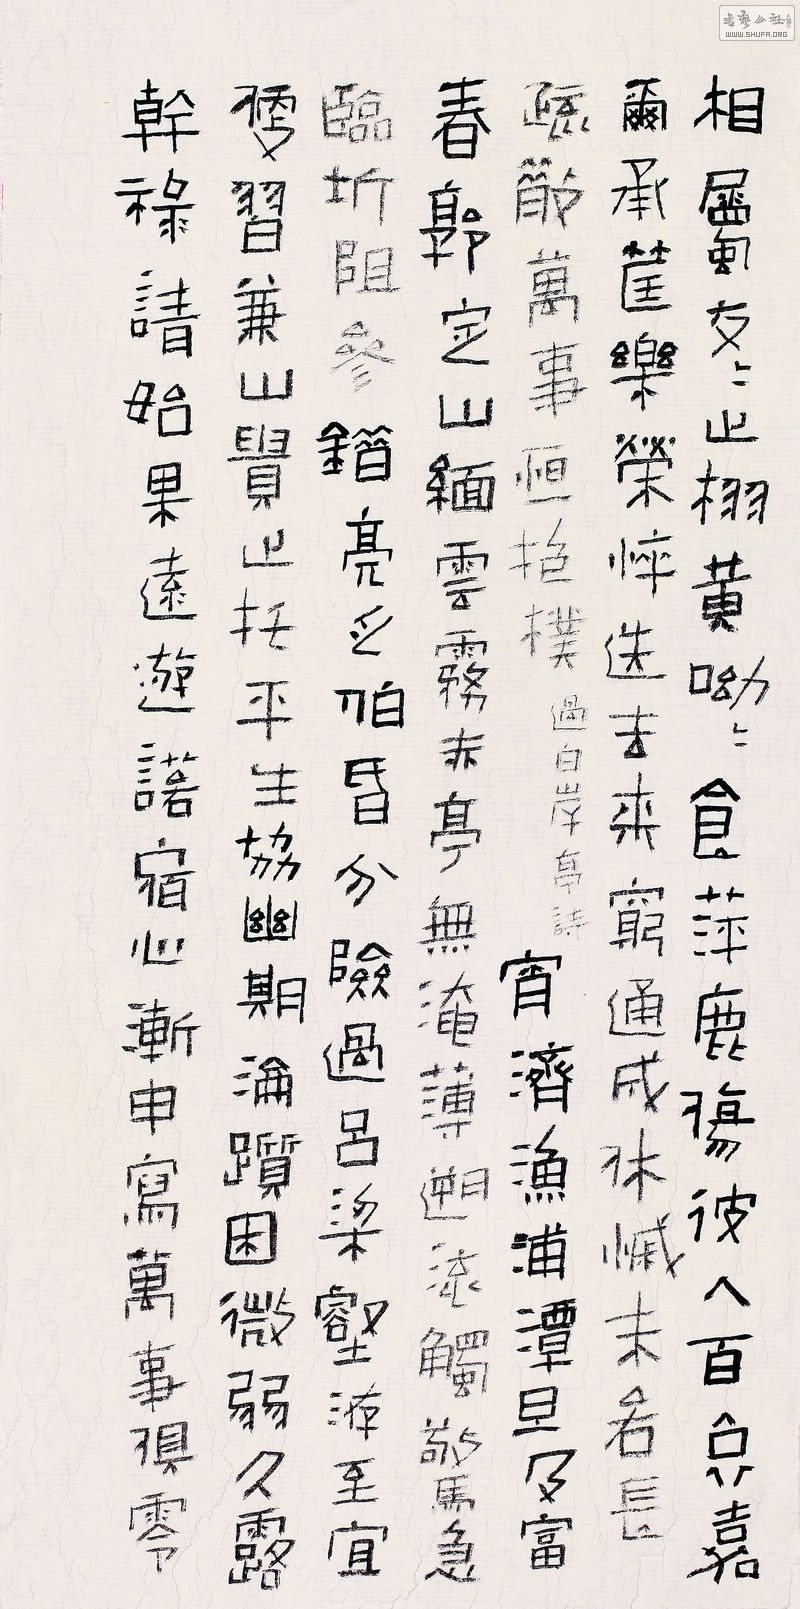 書藝公社
WWW.SHUFA.ORG
相屬交〻止栩黃呦〻食萍鹿傷彼人百哀嘉
爾承筐樂榮悴迭去來窮通成休慽未若長
疏散萬事恒抱樸
過白岸亭詩
宵濟漁浦潭旦及富
春郭定山緬雲霧赤亭無淹薄遡流觸驚急
臨圻阻參錯亮乏伯昏分險過呂梁壑洊至宜
便習兼山貴止托平生協幽期淪躓困微弱久露
幹祿請始果遠遊諾宿心漸申寫萬事俱零